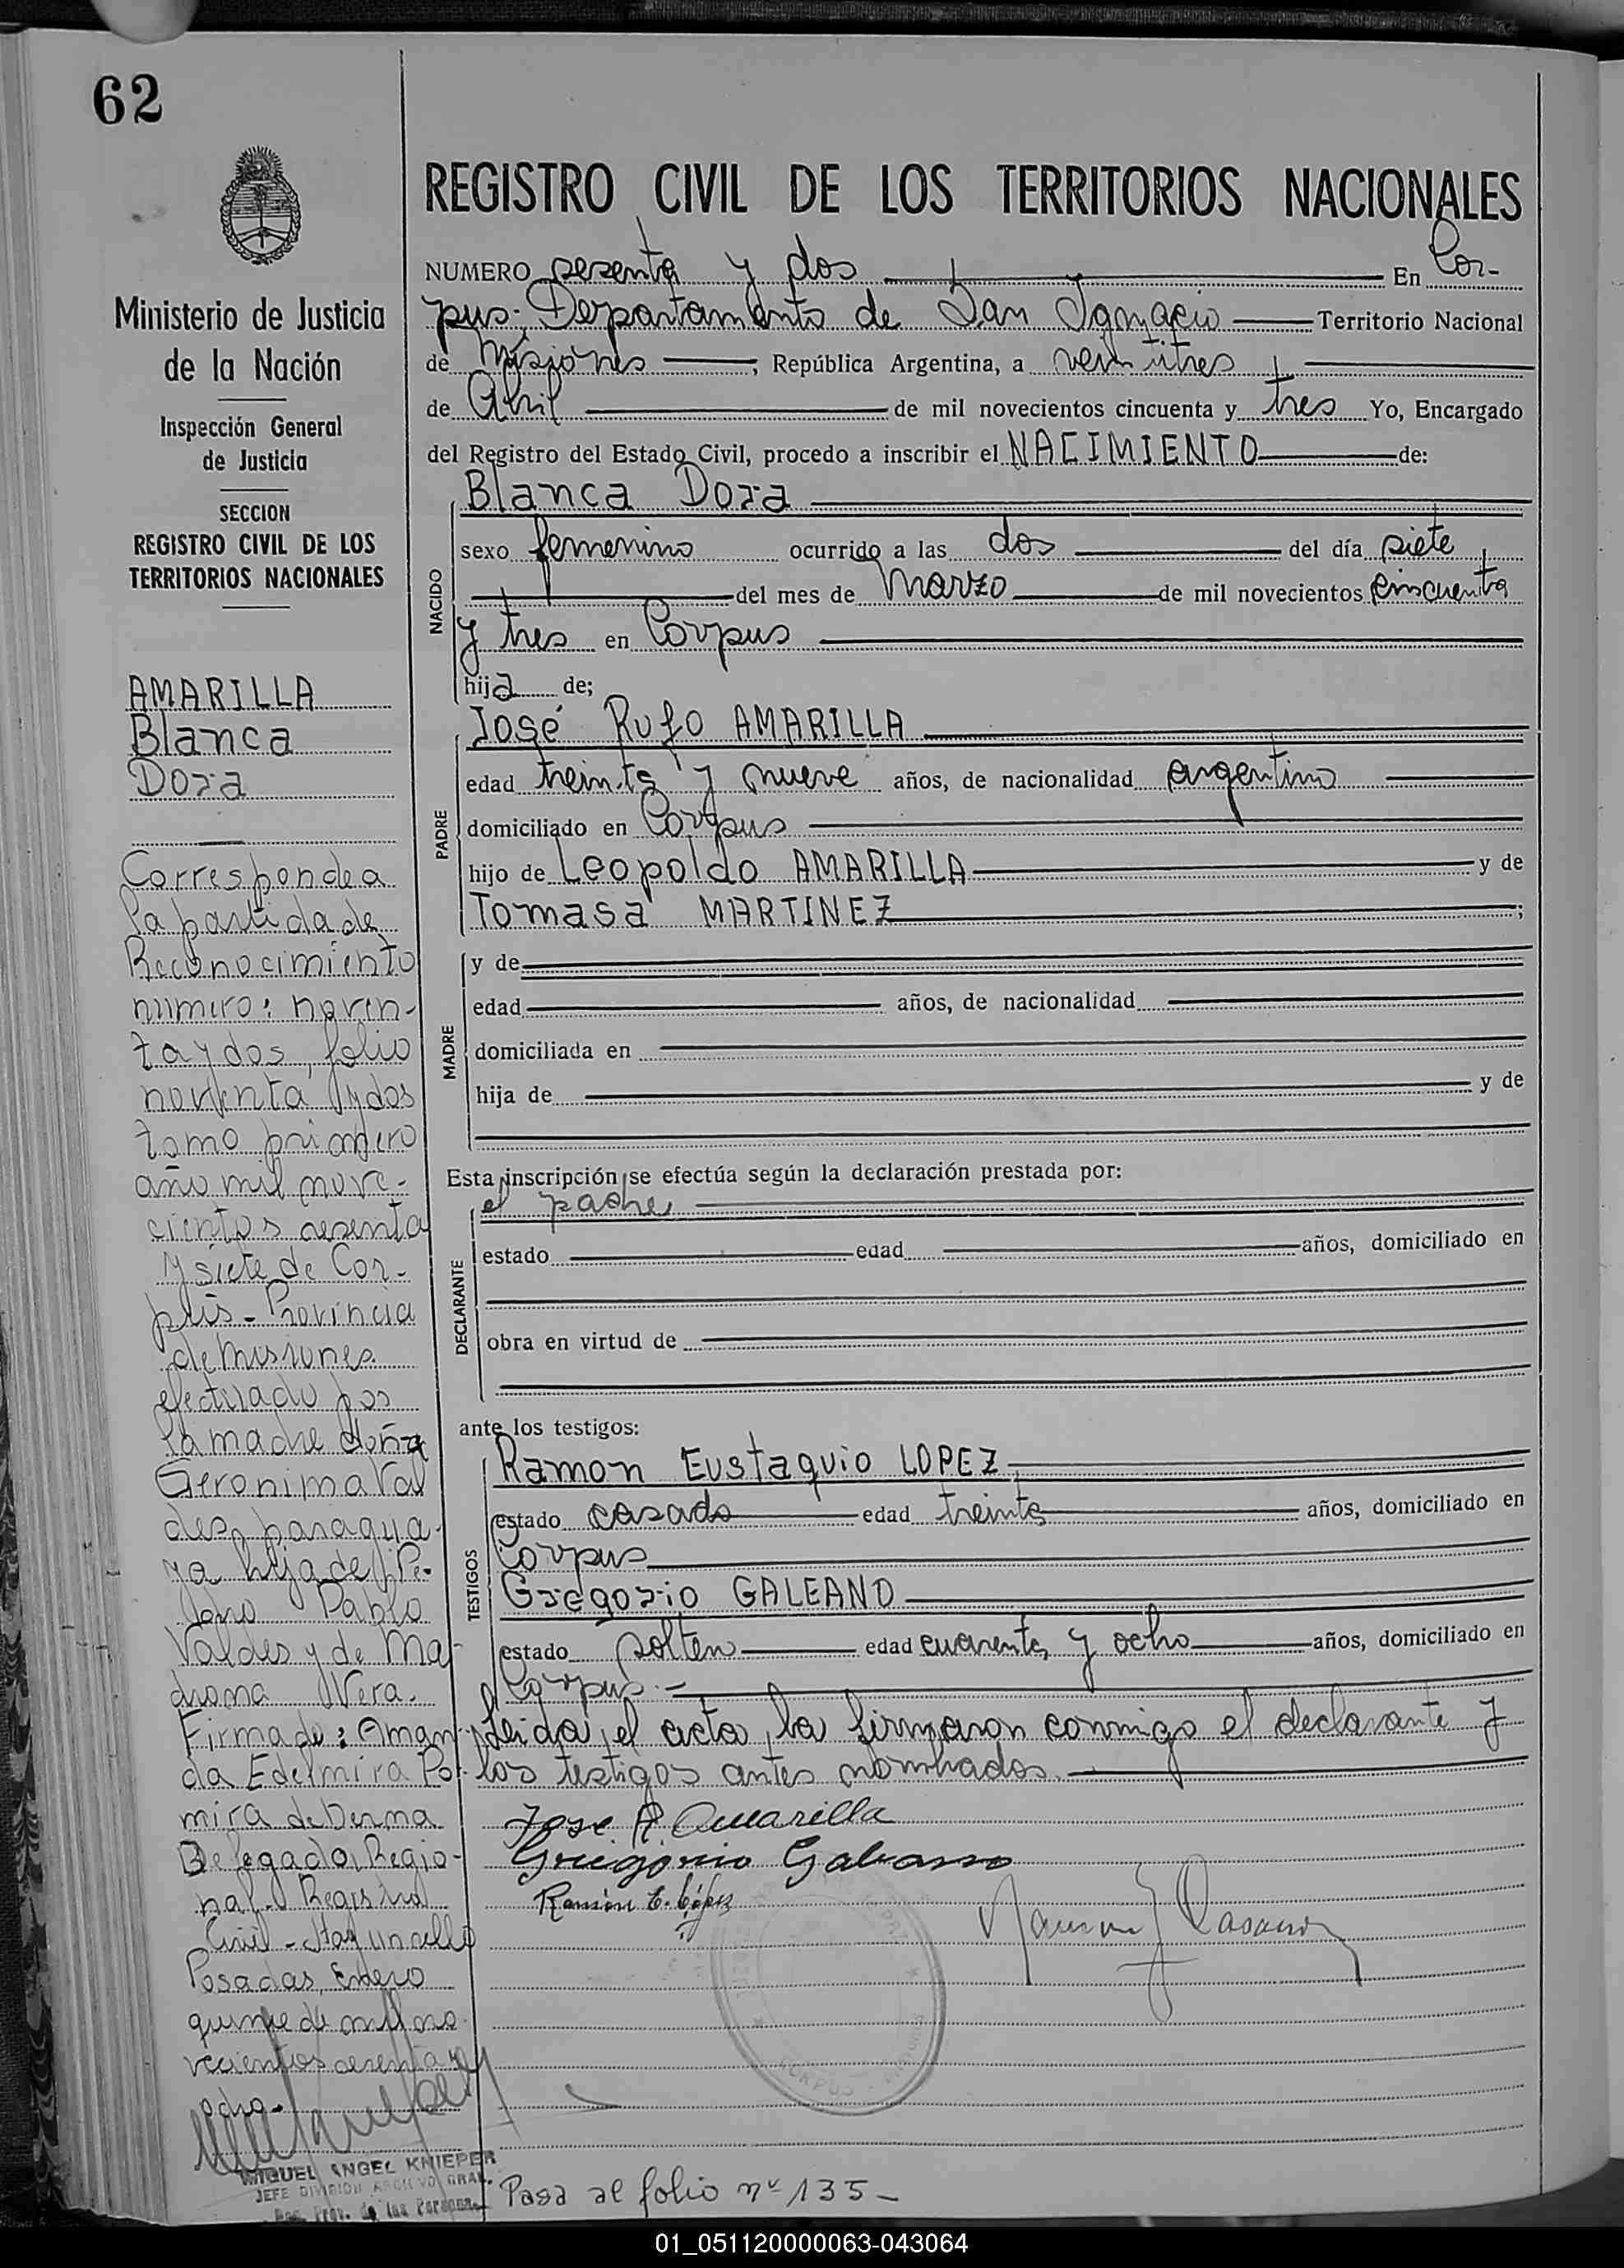 62
Ministerio de Justicia
de la Nación
Inspección General
de Justicia
SECCION
REGISTRO CIVIL DE LOS
TERRITORIOS NACIONALES
AMARILLA
Blanca
Dora
Corresponde a
la partida de
Reconocimiento
numero: noven-
ta y dos, folio
noventa y dos
tomo primero
año mil nove-
cientos sesenta
y siete de Cor-
pus - Provincia
de Misiones
efectuado por
la madre doña
Geronima Val
des, paragua-
ya hija de Pe-
dro Pablo
Valdes y de Ma-
drona Vera.
Firmado: Aman-
da Edelmira Pal-
mira de Derma
Delegada Regio-
nal. Registro
Civil - Hay un sello
Posadas, Enero
quince de mil no-
vecientos sesenta y
ocho.
MIGUEL ANGEL KNIEPER
JEFE DIVISION ARCHIVO GRAL.
Reg. Prov. de las Personas
REGISTRO CIVIL DE LOS TERRITORIOS NACIONALES
NUMERO sesenta y dos En Cor-
pus; Departamento de San Ignacio Territorio Nacional
de Misiones; República Argentina, a veintitres
de Abril de mil novecientos cincuenta y tres Yo, Encargado
del Registro del Estado Civil, procedo a inscribir el NACIMIENTO de:
NACIDO
Blanca Dora
sexo femenino ocurrido a las dos del día siete
del mes de Marzo de mil novecientos cincuenta
y tres en Corpus
hija de;
PADRE
José Rufo AMARILLA
edad treinta y nueve años, de nacionalidad argentino
domiciliado en Corpus
hijo de Leopoldo AMARILLA y de
Tomasa MARTINEZ;
MADRE
y de
edad años, de nacionalidad
domiciliada en
hija de y de
Esta inscripción se efectúa según la declaración prestada por:
DECLARANTE
el padre
estado edad años, domiciliado en
obra en virtud de
ante los testigos:
TESTIGOS
Ramon Eustaquio LOPEZ
estado casado edad treinta años, domiciliado en
Corpus
Gregorio GALEANO
estado soltero edad cuarenta y ocho años, domiciliado en
Corpus.-
Leida el acta, la firmaron conmigo el declarante y
los testigos antes nombrados.
Jose R. Amarilla
Gregorio Galeano
Ramón E. López
Pasa al folio nº 135-
01_051120000063-043064